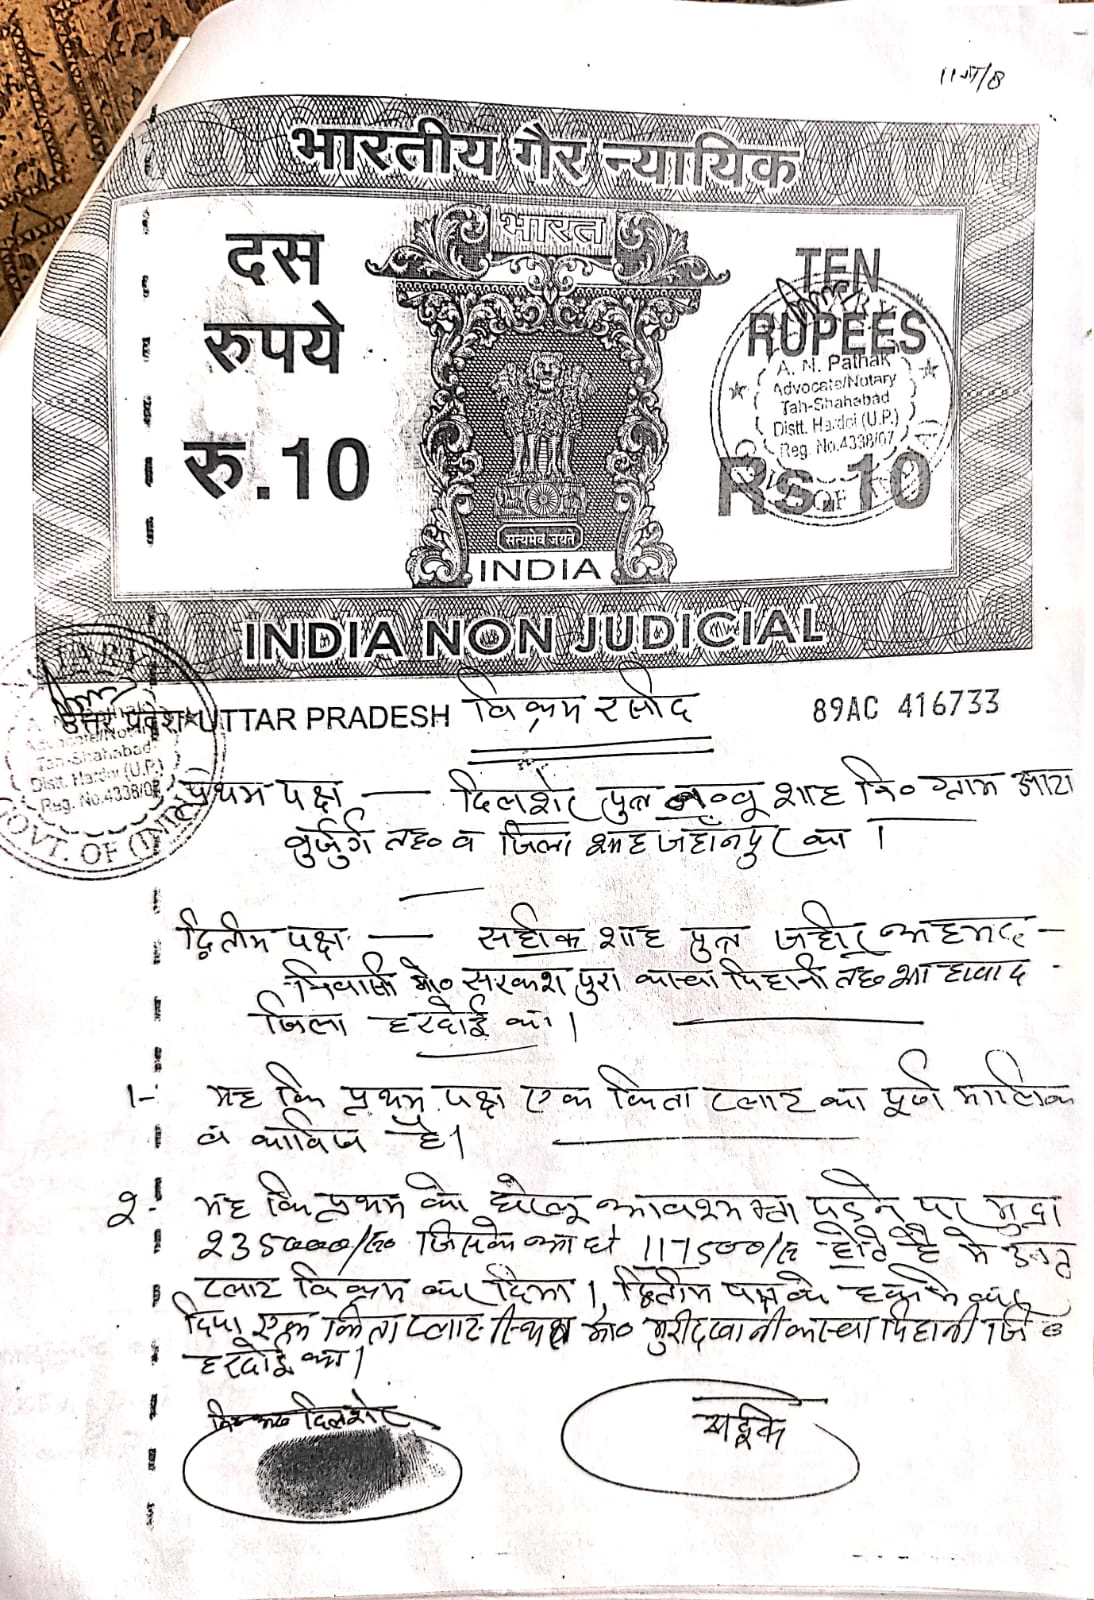 भारतीय गैर न्यायिक
भारत
दस
रुपये
रु.10
TEN
RUPEES
Rs.10
A. N. Pathak
Advocate/Notary
Tah-Shahabad
Distt. Hardoi (U.P.)
Reg. No.4338/07
सत्यमेव जयते
INDIA
INDIA NON JUDICIAL
उत्तर प्रदेश UTTAR PRADESH
विक्रय रसीद
89AC 416733
NOTARY
Advocate/Notary
Tah-Shahabad
Distt. Hardoi (U.P.)
Reg. No.4338/07
GOVT. OF INDIA
प्रथम पक्ष — दिलशेर पुत्र शाह नि० ग्राम
बुर्जुग तह० व जिला शाहजहाँनपुर का ।
द्वितीय पक्ष — सहीक शाह पुत्र जहीर अहमद -
निवासी मो० सरकश पुरा कस्वा पिहानी तह० शाहावाद
जिला हरदोई का ।
1- यह कि प्रथम पक्ष एक किता प्लाट का पूर्ण मालिक
व काविज है ।
2- यह कि प्रथम को घरेलू आवश्यक्ता पड़ने पर मुद्रा
235000/रु० जिसके आधे 117500/रु होते है मे उक्त
प्लाट विक्रय कर दिया । द्वितीय पक्ष के हक मे कर
दिया एक किता प्लाट स्थित मो० मुरीदखानी कस्वा पिहानी जि०
हरदोई का ।
दिलशेर